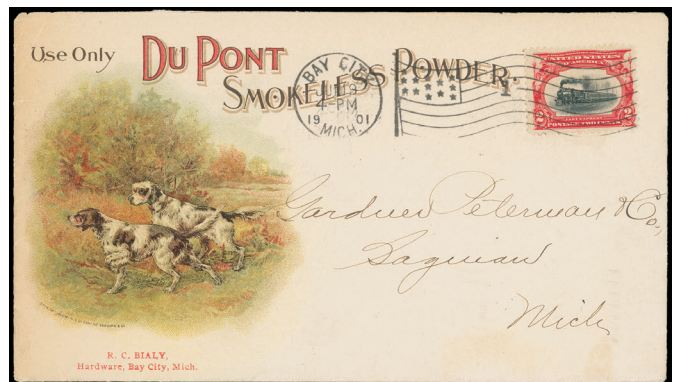 Use Only
DU PONT
SMOKELESS POWDER.
BAY CITY
4-PM
19 01
MICH.
1
UNITED STATES
OF AMERICA
2 2
POSTAGE TWO CENTS
Gardner Peterman & Co.,
Saginaw
Mich
R. C. BIALY,
Hardware, Bay City, Mich.